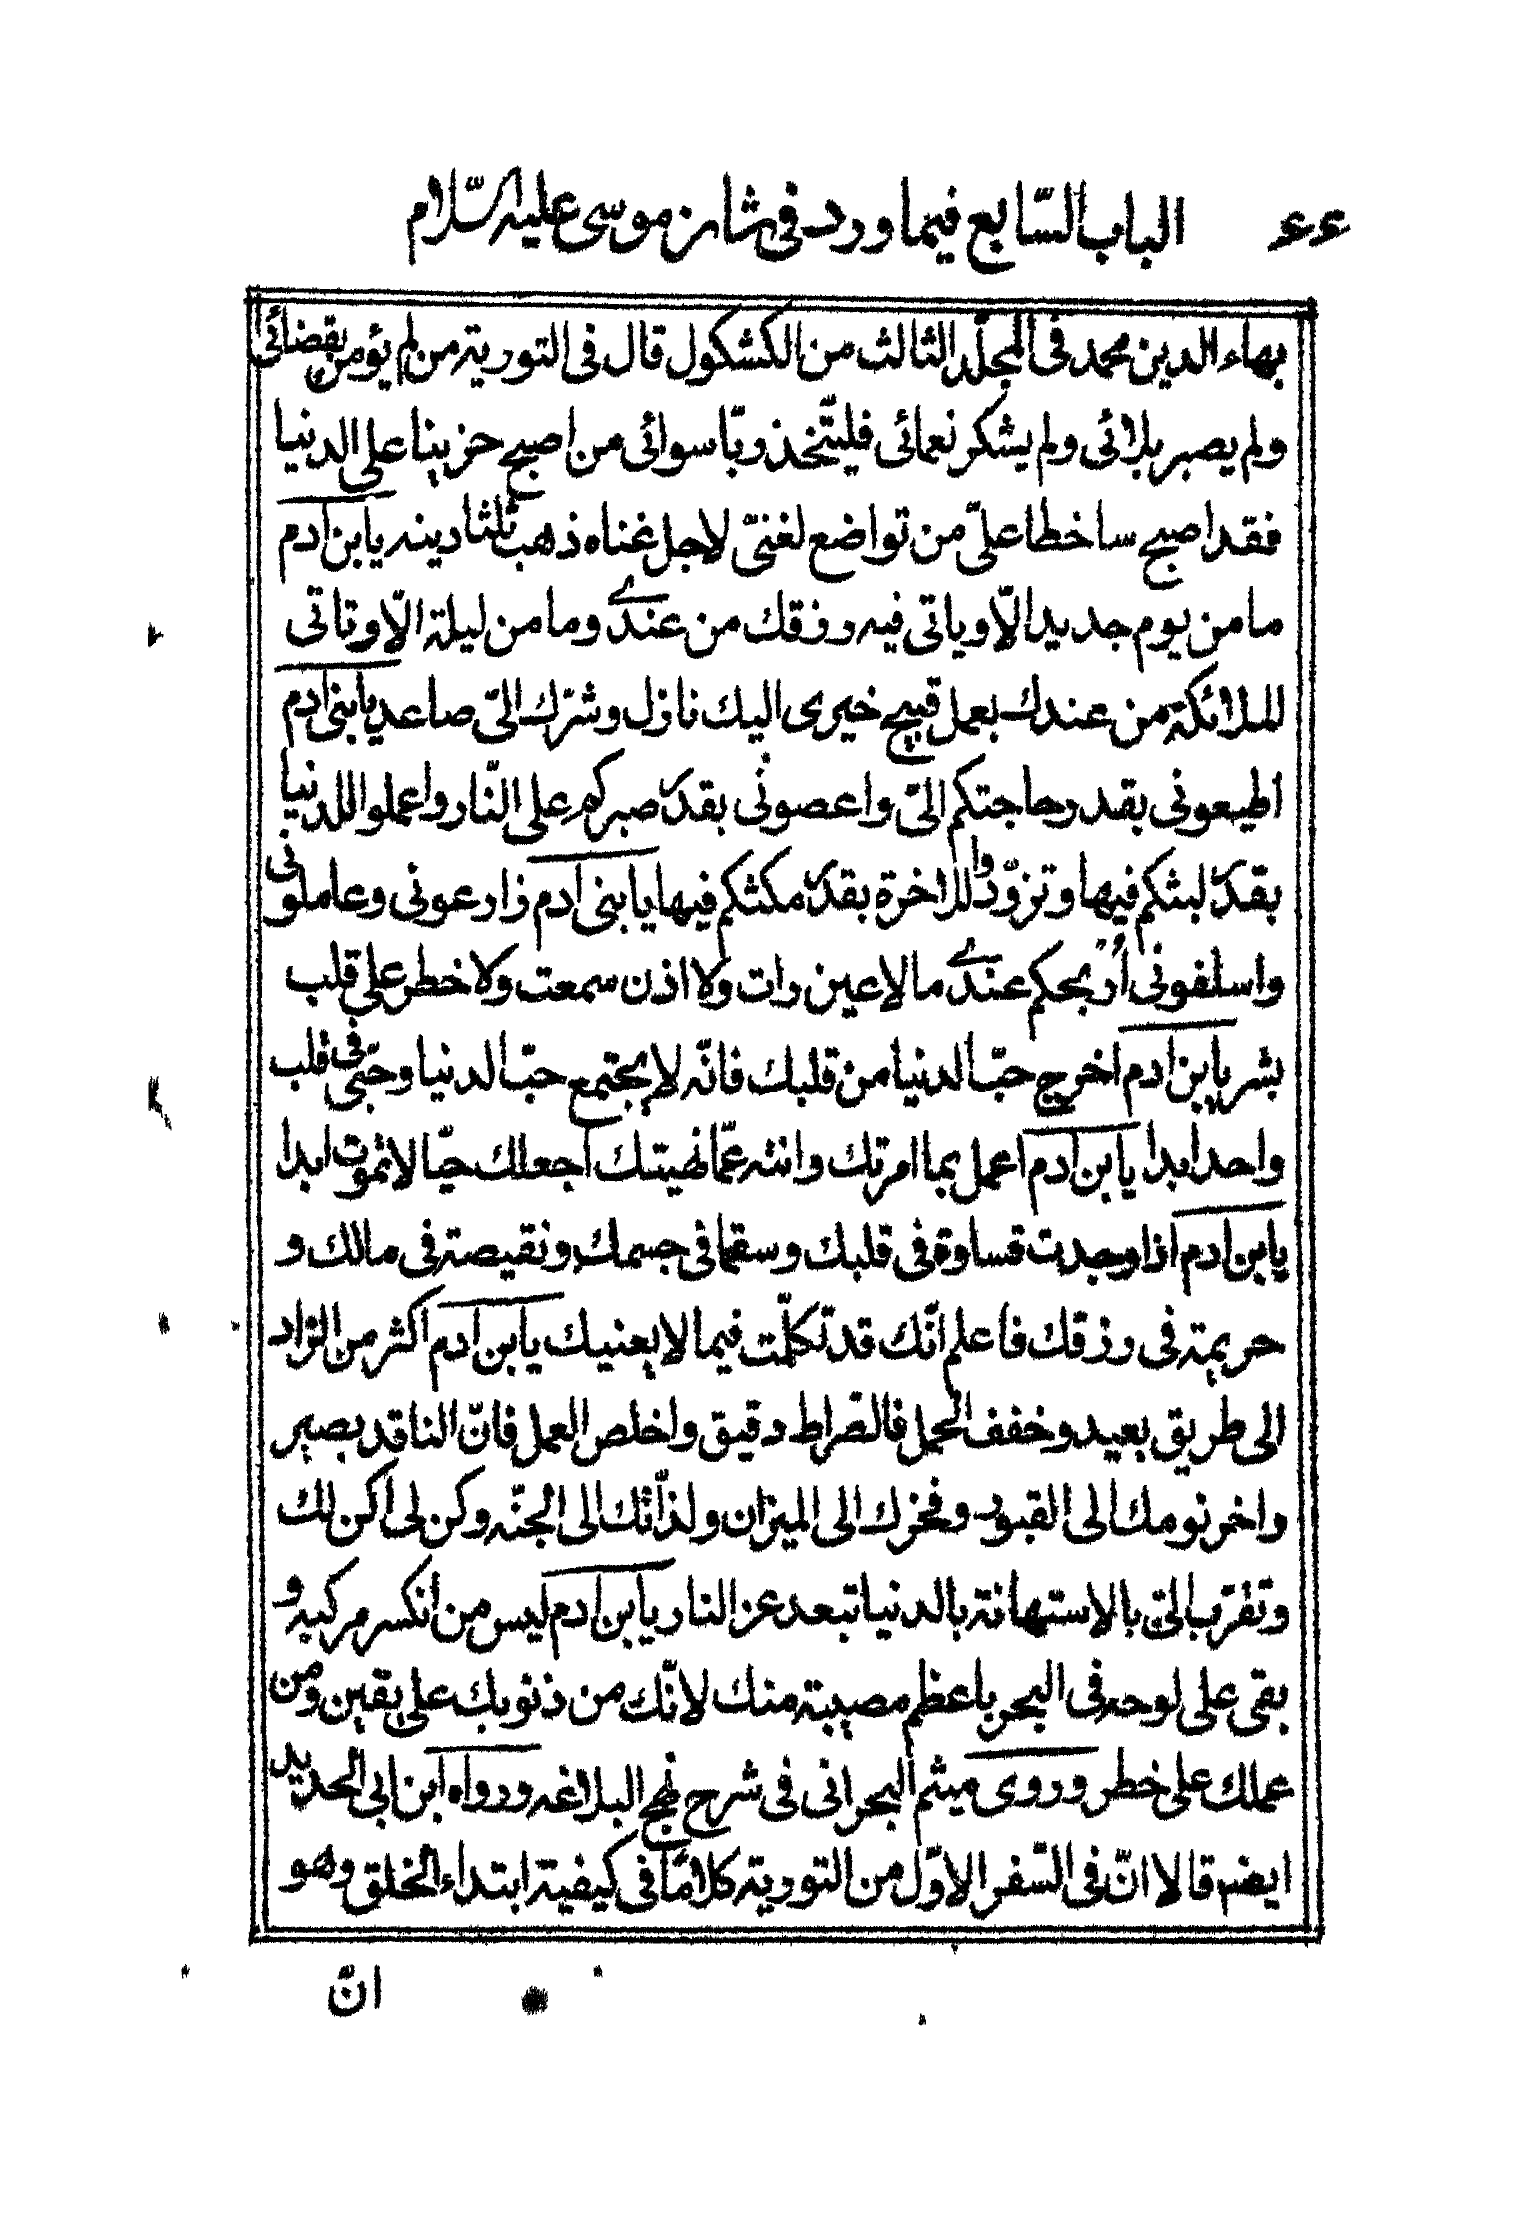 ٤٤ الباب السّابع فيما ورد فى شان موسى عليه السّلام
بهاء الدين محمد فى المجلّد الثالث من الكشكول قال فى التورية من لم يؤمن بقضائى
ولم يصبر بلائى ولم يشكر نعمائى فليتّخذ ربّا سوائى من اصبح حزينا على الدنيا
فقد اصبح ساخطا علىّ من تواضع لغنىّ لاجل غناه ذهب ثلثا دينه يا بن ادم
ما من يوم جديد الّا وياتى فيه رزقك من عندى وما من ليلة الّا وتاتى
الملائكة من عندك بعمل قبيح خيرى اليك نازل وشرّك الىّ صاعد يا بنى ادم
اطيعونى بقدر حاجتكم الىّ واعصونى بقدر صبركم على النّار واعملوا للدنيا
بقدر لبثكم فيها وتزوّدوا للاخرة بقدر مكثكم فيها يا بنى ادم زارعونى وعاملونى
واسلفونى أربحكم عندى ما لا عين رات ولا اذن سمعت ولا خطر على قلب
بشر يا بن ادم اخرج حبّ الدنيا من قلبك فانّه لا يجتمع حبّ الدنيا وحبّى فى قلب
واحد ابدا يا بن ادم اعمل بما امرتك وانته عمّا نهيتك اجعلك حيّا لا تموت ابدا
يا بن ادم اذا وجدت قساوة فى قلبك وسقما فى جسمك ونقيصة فى مالك و
حريمة فى رزقك فاعلم انّك قد تكلّمت فيما لا يعنيك يا بن ادم اكثر من الزاد
الى طريق بعيد وخفف الحمل فالصّراط دقيق واخلص العمل فانّ الناقد بصير
واخر نومك الى القبور وفخرك الى الميزان ولذّاتك الى الجنّه وكن لى اكن لك
وتقرّب الىّ بالاستهانة بالدنيا تبعد عن النار يا بن ادم ليس من انكسر مركبه و
بقى على لوحه فى البحر باعظم مصيبة منك لانّك من ذنوبك على يقين ومن
عملك على خطر وروى ميثم البحرانى فى شرح نهج البلاغه ورواه ابن ابى الحديد
ايضم قالا انّ فى السّفر الاوّل من التورية كلاما فى كيفية ابتداء الخلق وهو
انّ